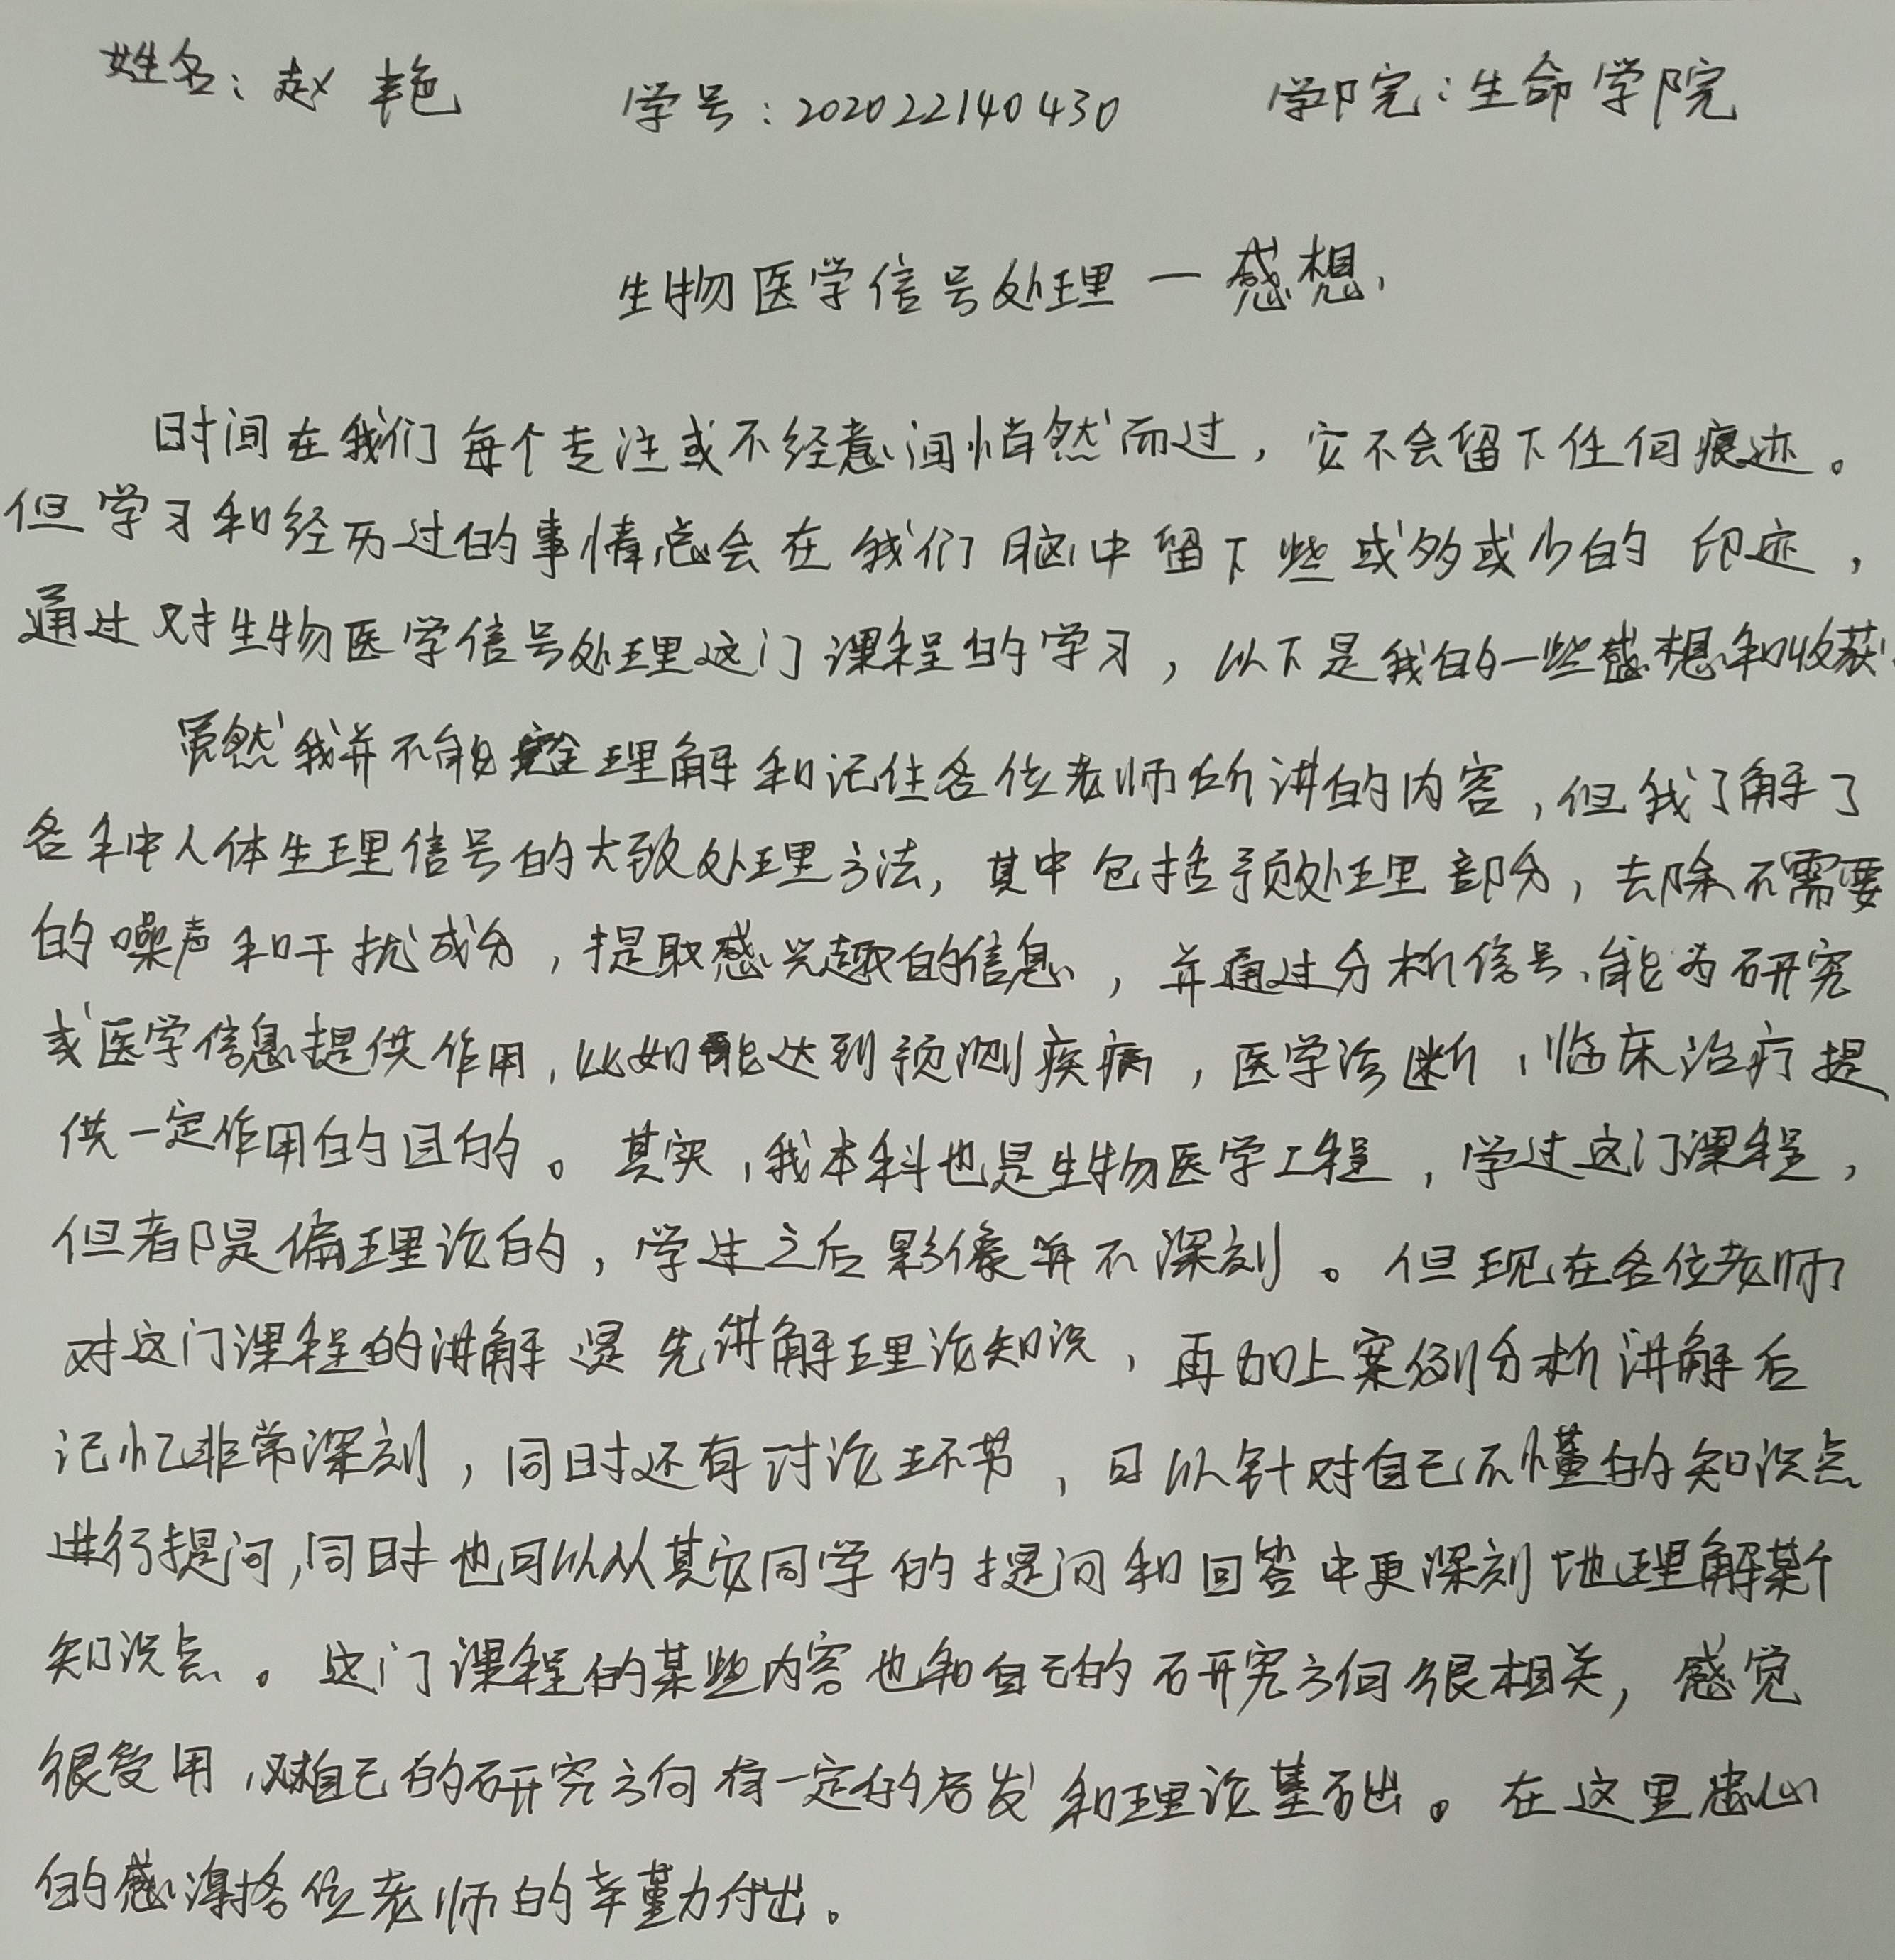 姓名：赵艳 学号：202022140430 学院：生命学院
生物医学信号处理—感想
时间在我们每个专注或不经意间悄然而过，它不会留下任何痕迹。
但学习和经历过的事情总会在我们脑中留下些或多或少的印迹，
通过对生物医学信号处理这门课程的学习，以下是我的一些感想和收获.
虽然我并不能完全理解和记住各位老师所讲的内容，但我了解了
各种人体生理信号的大致处理方法，其中包括预处理部分，去除不需要
的噪声和干扰成分，提取感兴趣的信息，并通过分析信号，能为研究
或医学信息提供作用，比如能达到预测疾病，医学诊断，临床治疗提
供一定作用的目的。其实，我本科也是生物医学工程，学过这门课程，
但都是偏理论的，学过之后影像并不深刻。但现在各位老师
对这门课程的讲解是先讲解理论知识，再加上案例分析讲解后
记忆非常深刻，同时还有讨论环节，可以针对自己不懂的知识点
进行提问，同时也可以从其它同学的提问和回答中更深刻地理解某个
知识点。这门课程的某些内容也和自己的研究方向很相关，感觉
很受用，对自己的研究方向有一定的启发和理论基础。在这里忠心
的感谢各位老师的辛勤付出。